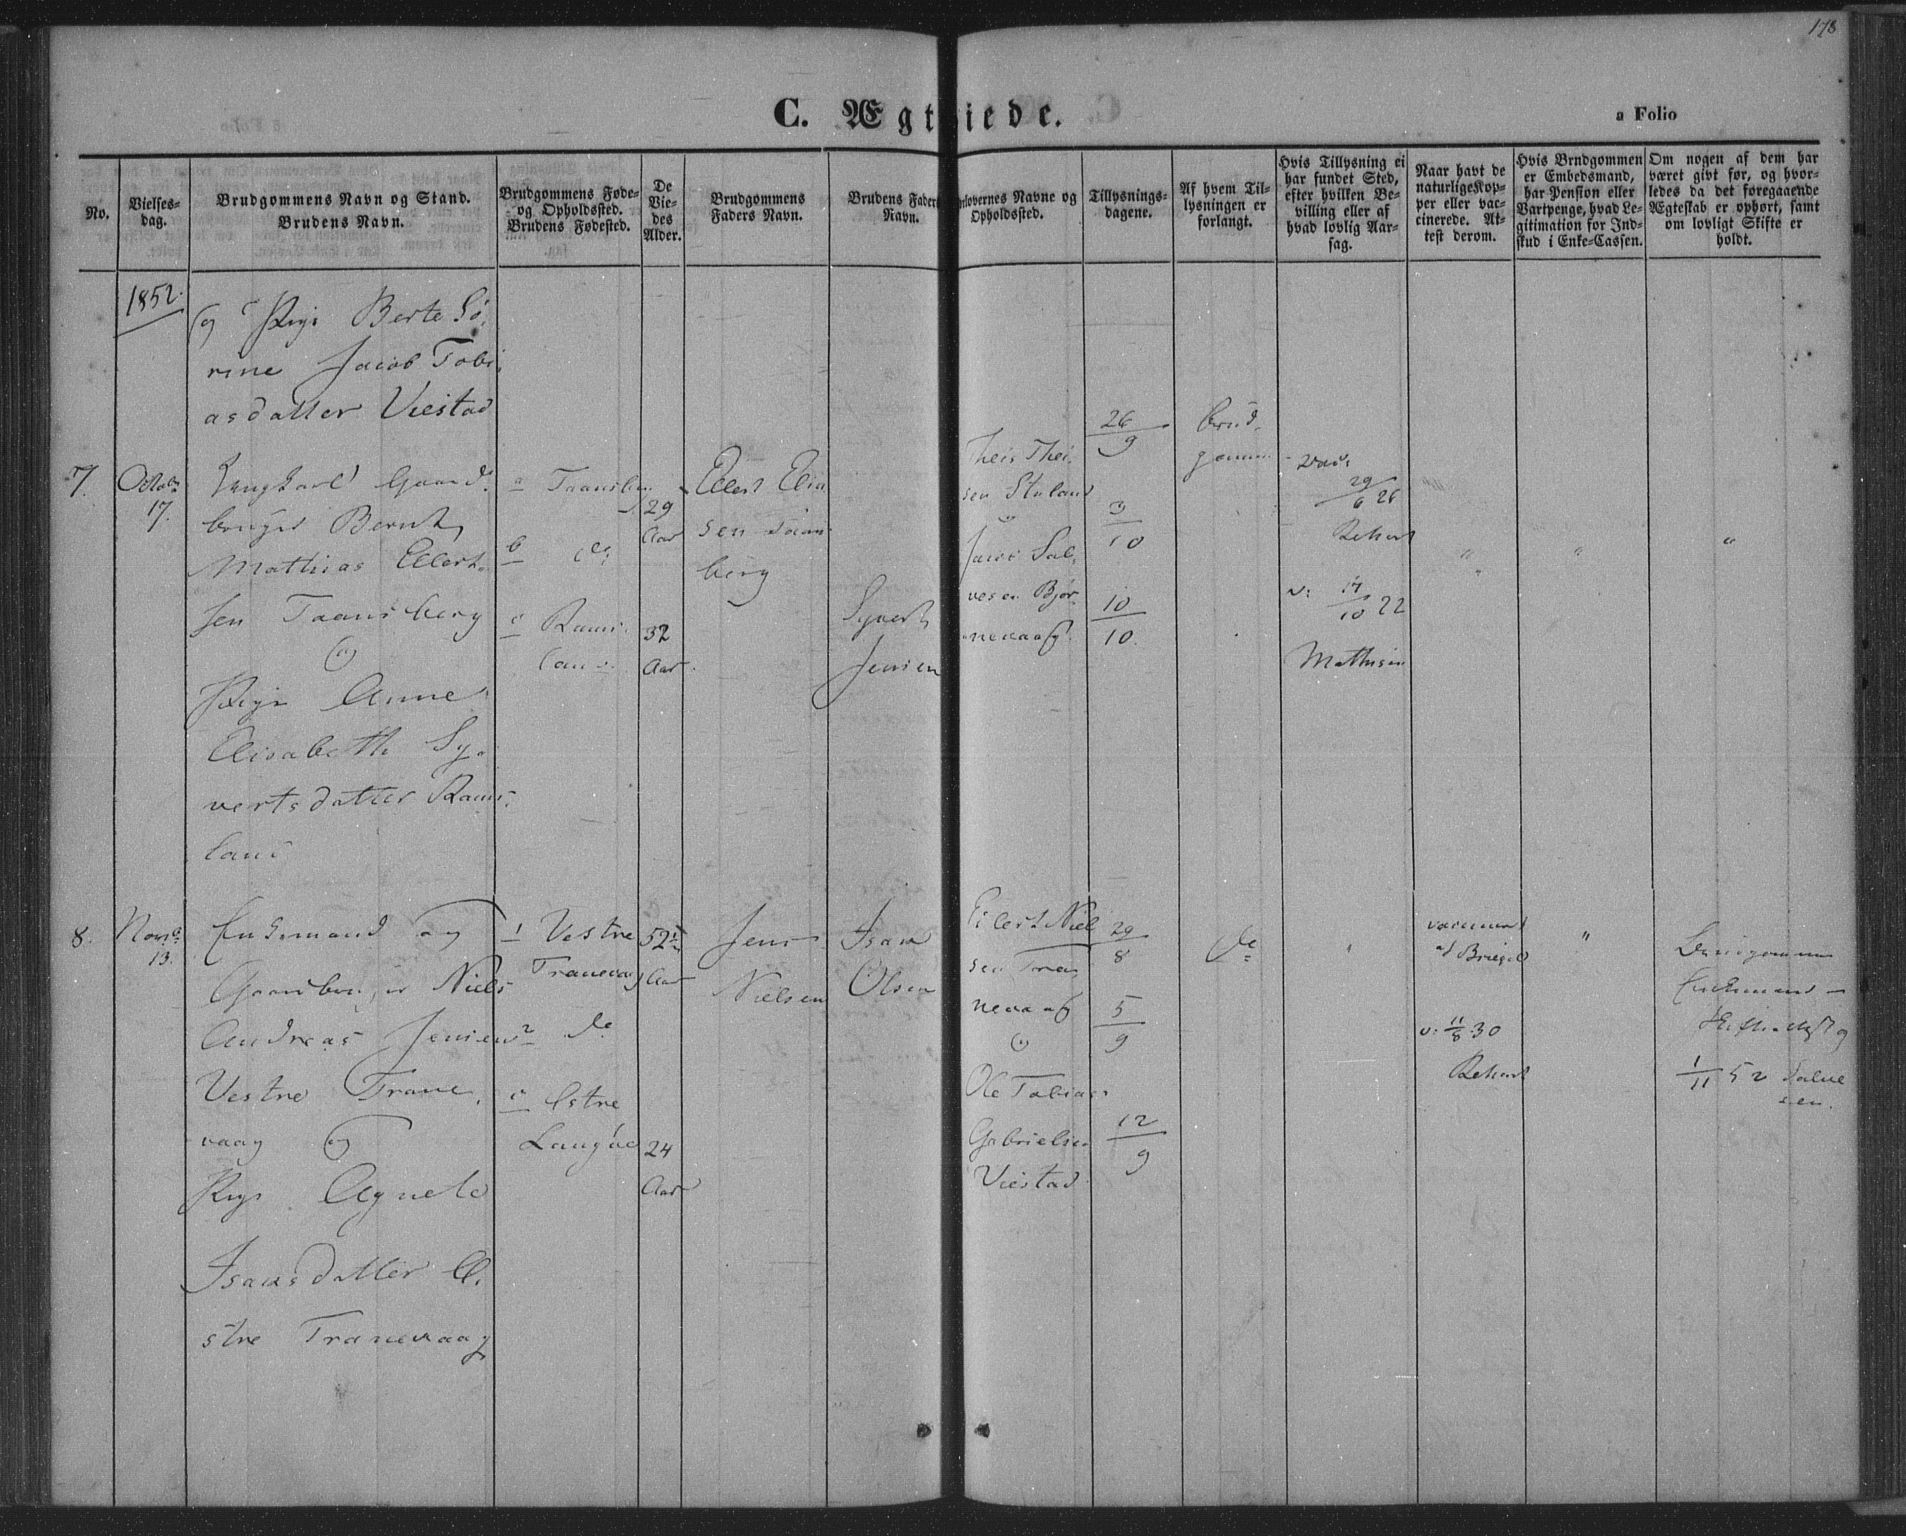 178
C. Ægtviede.
a Folio
No.
Vielses-
dag.
Brudgommens Navn og Stand.
Brudens Navn.
Brudgommens Føde-
og Opholdssted.
Brudens Fødested.
De
Vie-
des
Alder.
Brudgommens
Faders Navn.
Brudens Faders
Navn.
Forlovernes Navne og
Opholdssted.
Tillysnings-
dagene.
Af hvem Til-
lysningen er
forlangt.
Hvis Tillysning ei
har fundet Sted,
efter hvilken Be-
villing eller af
hvad lovlig Aar-
sag.
Naar havt de
naturlige Kop-
per eller vac-
cinerede. At-
test derom.
Hvis Brudgommen
er Embedsmand,
har Pension eller
Vartpenge, hvad Le-
gitimation for Ind-
skud i Enke-Cassen.
Om nogen af dem har
været givt før, og hvor-
ledes da det foregaaende
Ægteskab er ophørt, samt
om lovligt Skifte er
holdt.
1852.
og Pige Berte Sø-
rine Jacob Tobi-
asdatter Viestad
7.
Octob.
17.
Ungkarl Gaard-
bruger Bernt
Mathias Ellert-
sen Taansberg
og
Pige Anne
Elisabeth Sy-
vertsdatter Rams-
land
a Taansberg
b do
c Rams-
land
29
Aar
32
Aar
Ellert Elia
sen Taans
berg
Syvert
Jensen
Theis Thei-
sen Stuland
Jacob Sal-
vesen Bjør-
nevaag
26/9
3/10
10/10
Brud-
gommen
vac:
29/6 26
v: 17/10 22
Mathisen
8.
Novb.
13.
Enkemand og
Gaardbruger Niels
Andreas Jensen
Vestre Trane-
vaag og
Pige Agnete
Isaksdatter Ø-
stre Tranevaag
1 Vestre
Tranevaag
2 do
c Østre
Langøe
52½
Aar
24
Aar
Jens
Nielsen
Isak
Olsen
Eilert Niel
sen Tra
nevaag
og
Ole Tobias
Gabrielsen
Viestad
29/8
5/9
12/9
do
vaccineret
v: 11/8 30
Brudgommen
Enkemand –
1/11 52 Salve
sen.